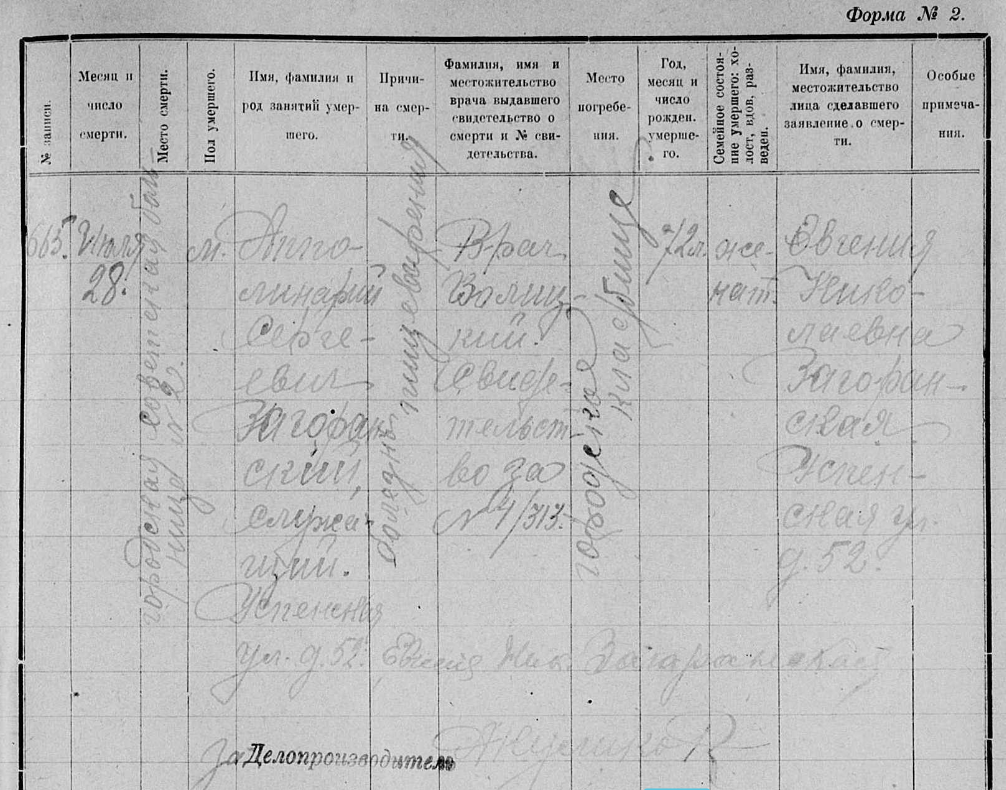 Форма № 2.
№ записи.
Месяц и
число
смерти.
Место смерти.
Пол умершего.
Имя, фамилия и
род занятий умер-
шего.
Причи-
на смер-
ти.
Фамилия, имя и
местожительство
врача выдавшего
свидетельство о
смерти и № сви-
детельства.
Место
погребе-
ния.
Год,
месяц и
число
рожден.
умерше-
го.
Семейное состоя-
ние умершего: хо-
лост, вдов, раз-
веден.
Имя, фамилия,
местожительство
лица сделавшего
заявление о смер-
ти.
Особые
примеча-
ния.
665.
Июля
28.
городская советская боль-
ница № 2.
м.
Аппо-
линарий
Серге-
евич
Загоран
ский,
служа-
щий.
Успенская
ул. д. 52.
пищеварения
Врач
Волиц-
кий.
Свиде-
тельст
во за
№ 4/313.
городское
кладбище
72 л.
же-
нат.
Евгения
Нико-
лаевна
Загоран-
ская
Успен-
ская ул.
д. 52.
Ник. Загоранская
за Делопроизводитель